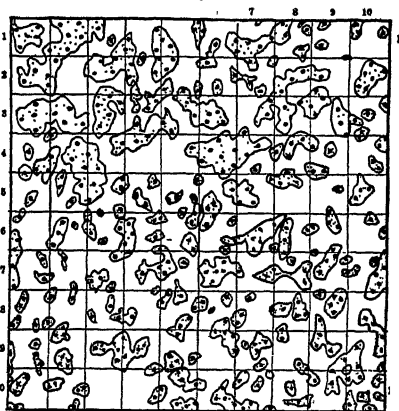 7 8 9 10
1
2
3
4
5
6
7
8
9
0